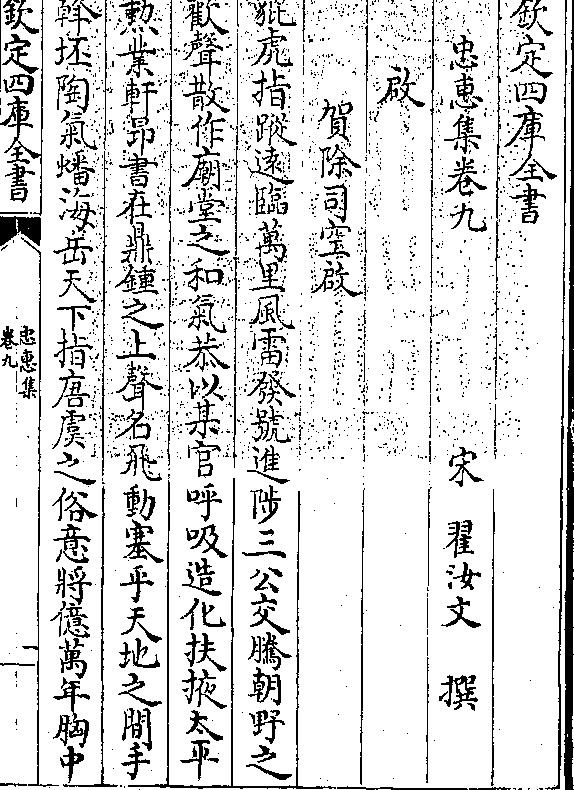 欽定四庫全書
忠惠集卷九
宋 翟汝文 撰
啟
賀除司空啟
貔虎指蹤遠臨萬里風雷發號進陟三公交騰朝野之
歡聲散作廟堂之和氣恭以某官呼吸造化扶掖太平
勲業軒昻書在鼎鍾之上聲名飛動塞乎天地之間手
斡坯陶氣蟠海岳天下指唐虞之俗意將億萬年胸中
欽定四庫全書
忠惠集
卷九
一